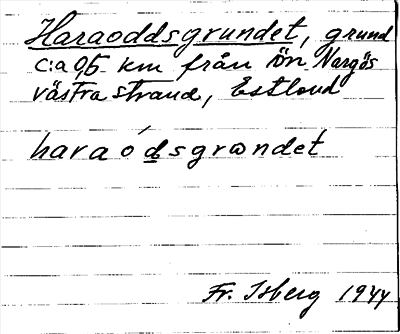 Haraoddsgrundet, grund
c:a 0,5 km från ön Nargös
västra strand, Estland
hara ó dsgrωndet
Fr. Isberg 1944